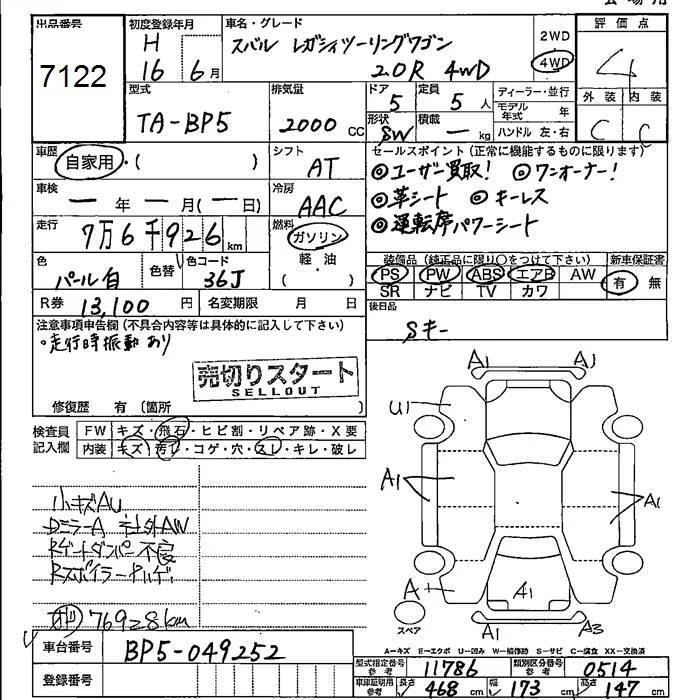 出品番号
7122
初度登録年月
H
16 6月
車名・グレード
スバル レガシィツーリングワゴン
2.0R 4WD
2WD
4WD
評価点
4
外装 内装
C C
型式
TA-BP5
排気量
2000 CC
ドア
5
定員
5 人
形状
SW
積載
ー kg
ディーラー・並行
モデル年式 年
ハンドル 左・右
車歴
自家用・( )
シフト
AT
セールスポイント(正常に機能するものに限ります)
◎ユーザー買取! ◎ワンオーナー!
◎革シート ◎キーレス
◎運転席パワーシート
車検
ー年ー月(ー日)
冷房
AAC
走行
7万6千926km
燃料
ガソリン
軽・油
( )
色
パール白
色替
色コード
36J
装備品(純正品に限り○をつけて下さい)
PS PW ABS エアB AW
SR ナビ TV カワ
新車保証書
有 無
R券 13,100 円
名変期限 月 日
後日品
Sキー
注意事項申告欄(不具合内容等は具体的に記入して下さい)
・走行時振動あり
売切りスタート
SELLOUT
修復歴 有(箇所 )
検査員
記入欄
FW キズ・飛石・ヒビ割・リペア跡・X要
内装 キズ・汚レ・コゲ・穴・スレ・キレ・破レ
小キズAU
Dミラー A 社外AW
Rゲートダンパー不良
Rスポイラーハゲ
76928km
A1 A1
U1
A1 A1
A A1
スペア
A1 A3
A-キズ E-エクボ U-凹み W-補修跡 S-サビ C-腐食 XX-交換済
車台番号
BP5-049252
登録番号
型式指定番号
参考
11786
類別区分番号
参考
0514
車庫証明用
参考
長さ 468 cm
幅 173 cm
高さ 147 cm